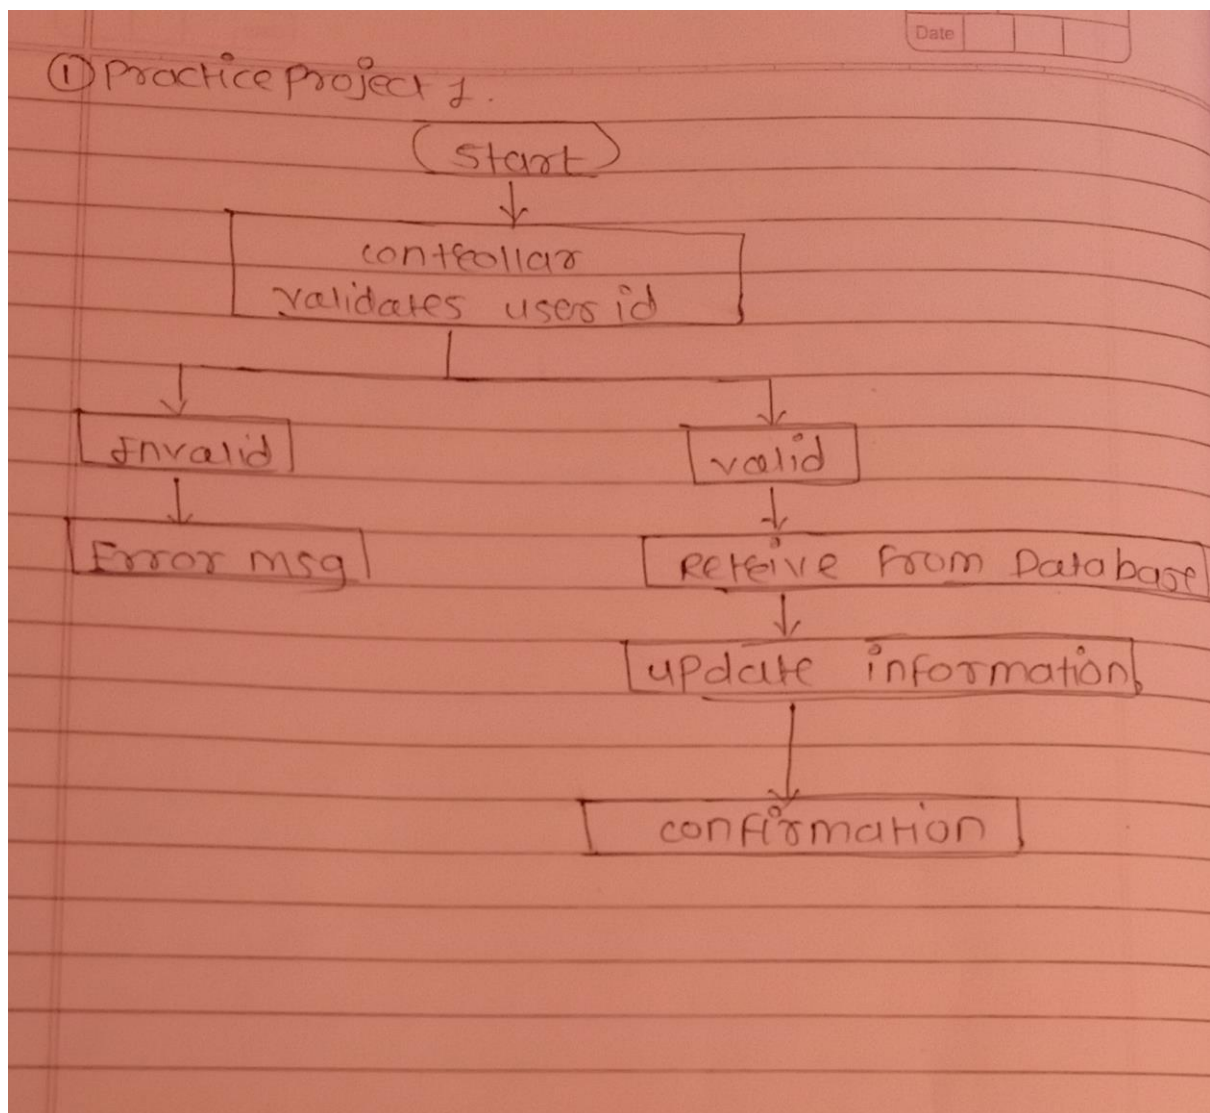 Date
① Practice Project 1.
Start
controllar
validates user id
Invalid
valid
Error msg
Reteive From Database
update information
confirmation